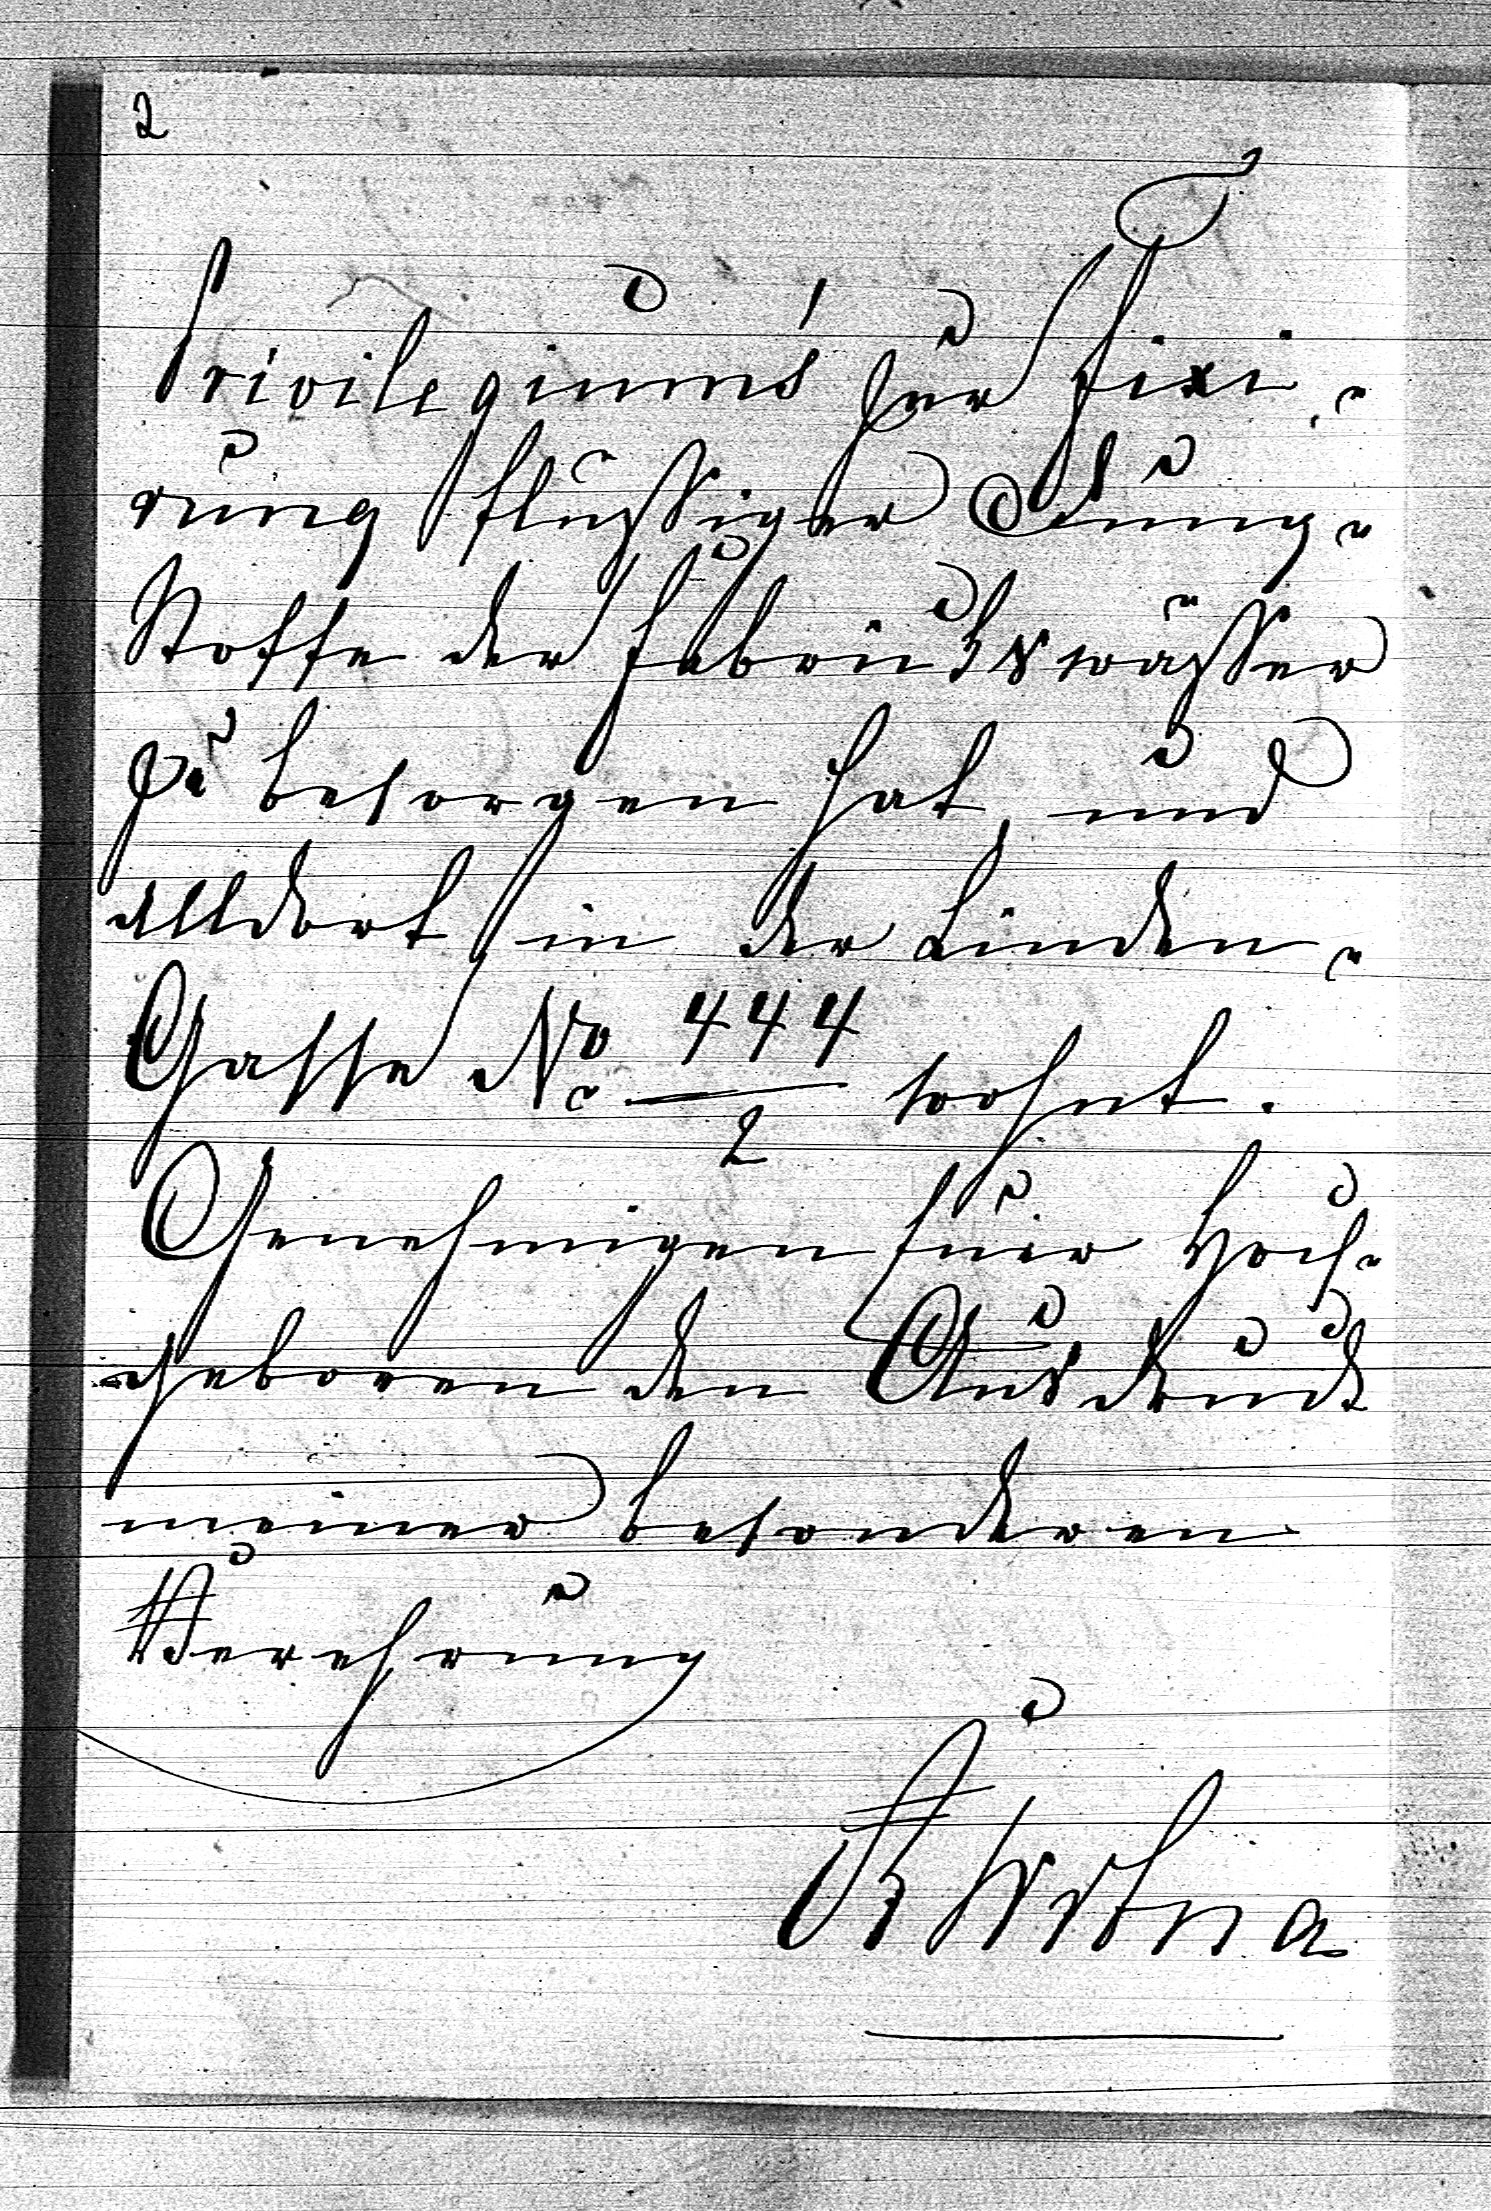 2
Privilegiums für Fixi-
rung flüssiger Dung-
Stoffe der Fabrikswässer
zu besorgen hat, und
alldort in der Linden-
Gasse No 444/2 wohnt.
Genehmigen Euer Hoch-
geboren den Ausdruck
meiner besonderen
Verehrung
Wrbna